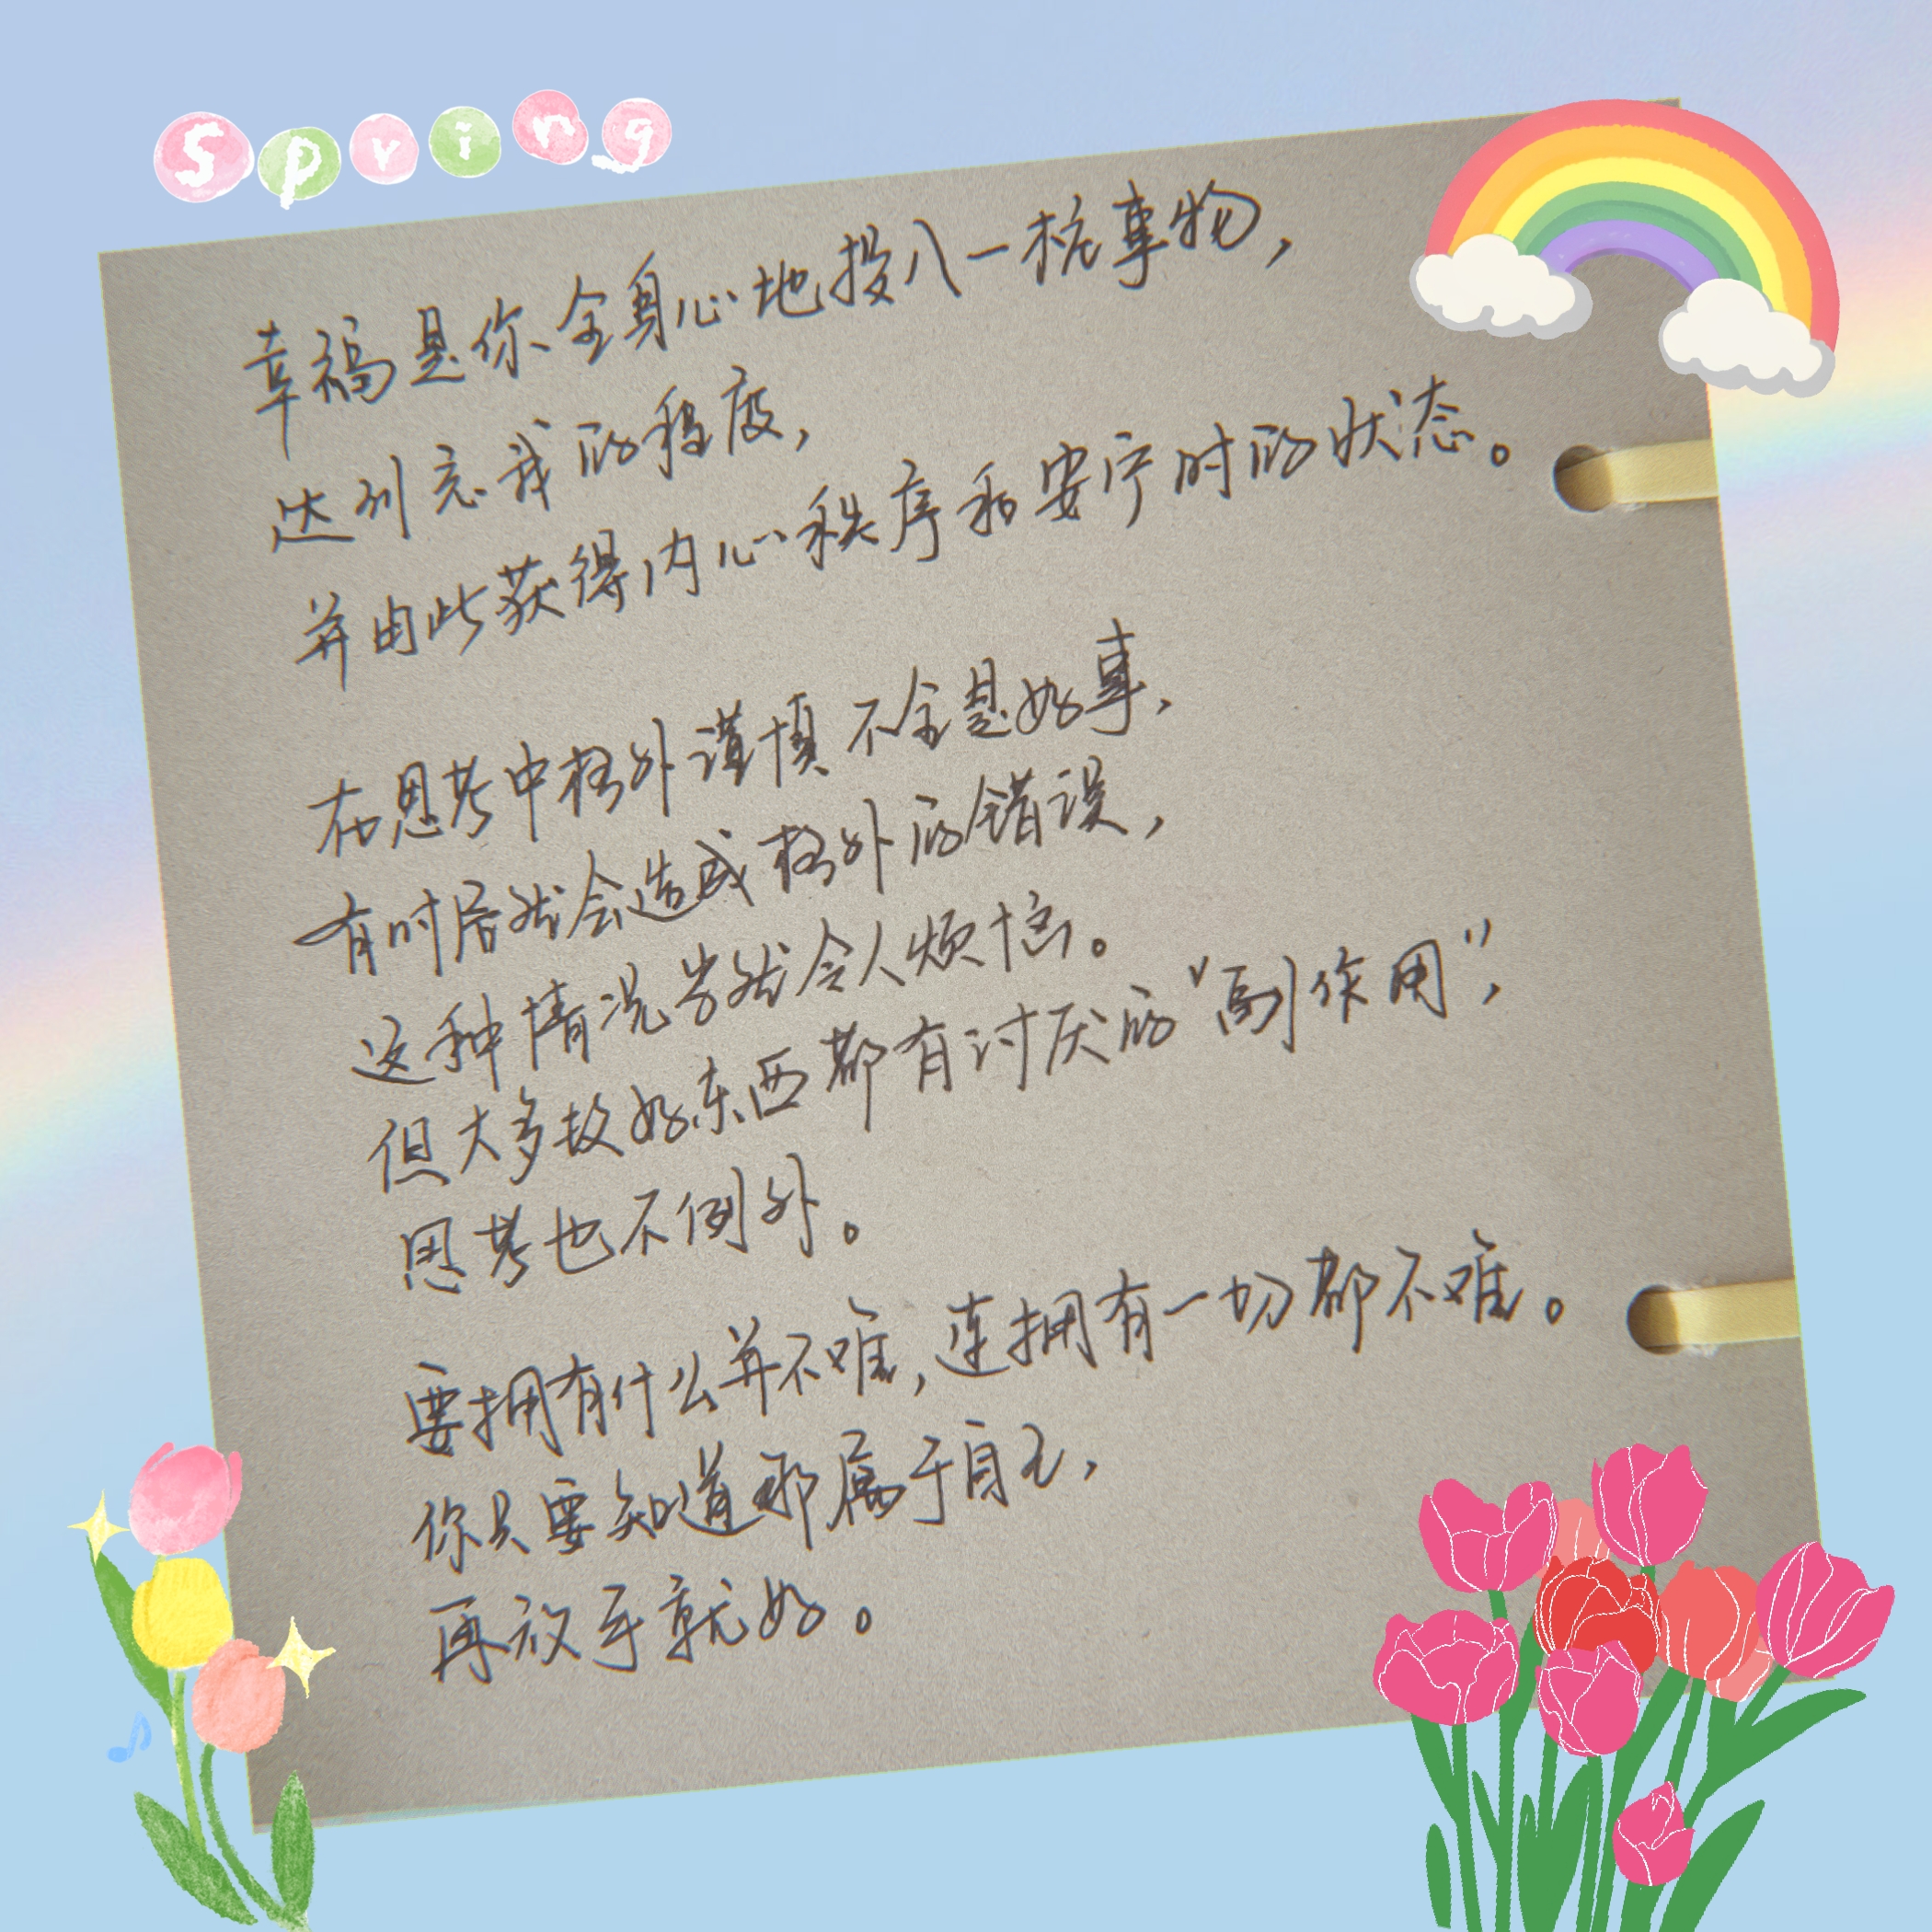 Spring
幸福是你全身心地投入一桩事物，
达到忘我的程度，
并由此获得内心秩序和安宁时的状态。
在思考中格外谨慎不全是好事，
有时居然会造成格外的错误，
这种情况当然令人烦恼。
但大多数好东西都有讨厌的“副作用”，
思考也不例外。
要拥有什么并不难，连拥有一切都不难。
你只要知道那属于自己，
再放手就好。